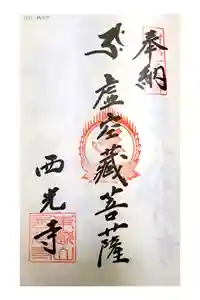 奉納
虚空藏菩薩
西光寺